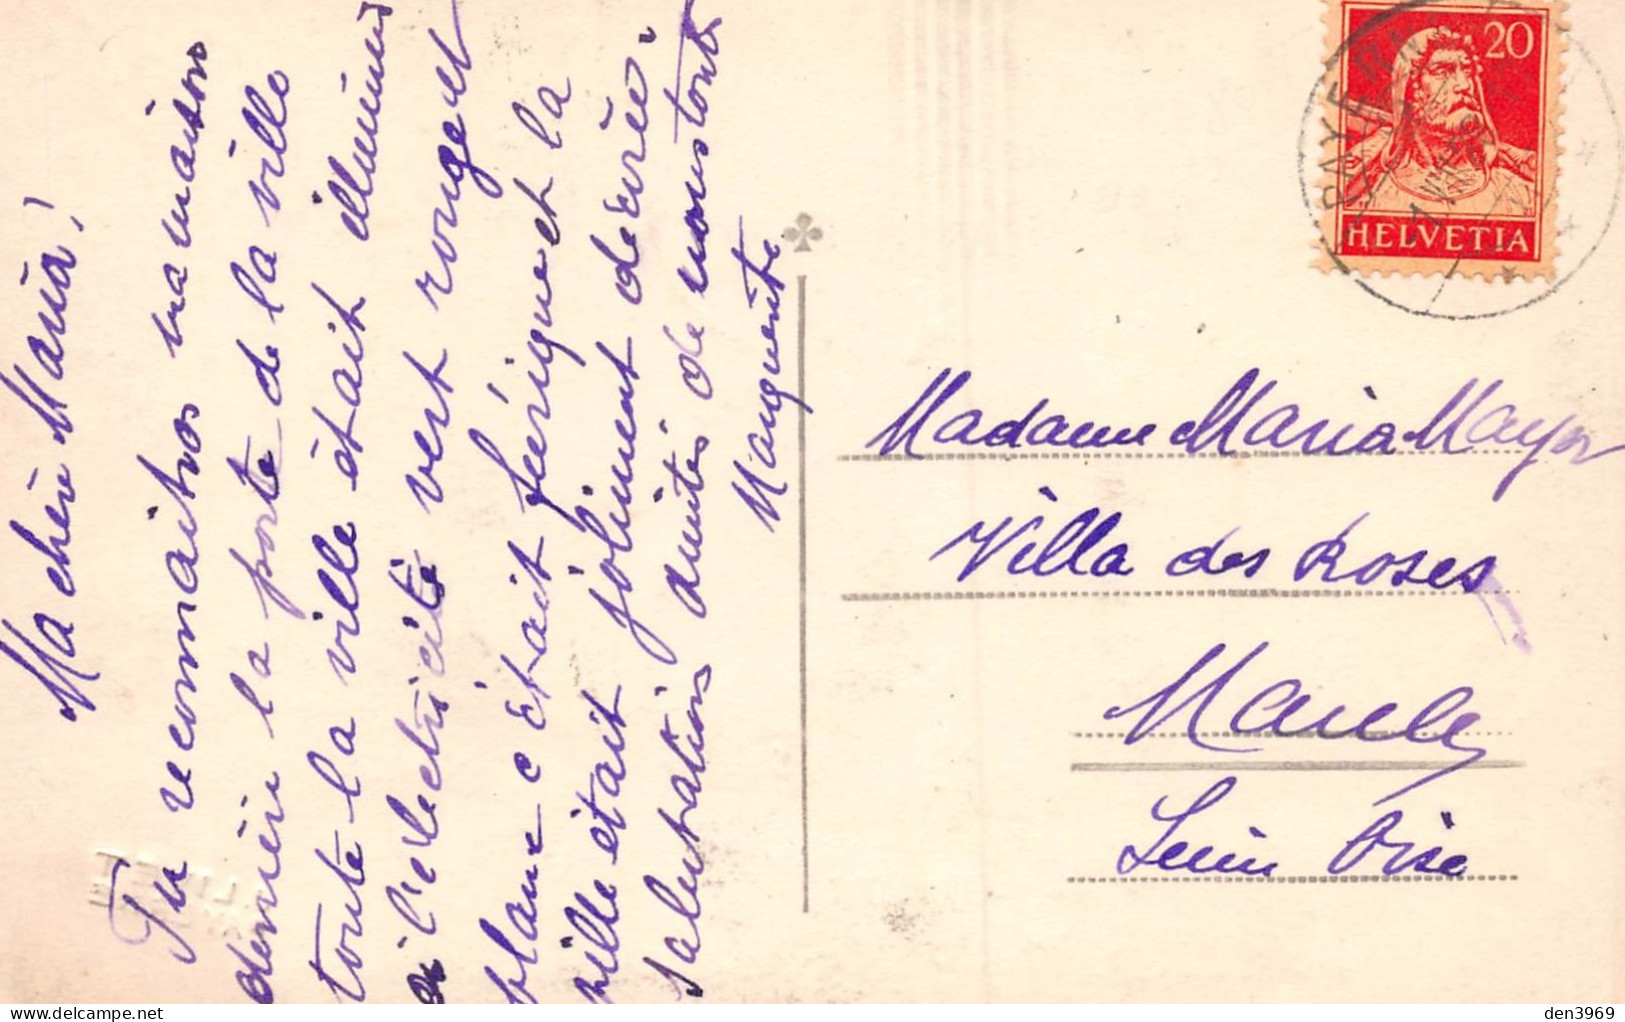 Ma chère Maria!
Tu reconnaitras ma maison
derrière la porte de la ville
toute la ville était illuminée
a l'électricité vert rouge et
blanc c'était féerique et la
ville était joliment décorée.
salutations amitiés de nous tous
Marguerite
20
HELVETIA
PAYERNE
Madame Maria Mayor
Villa des Roses
Maule
Seine Oise
den3969